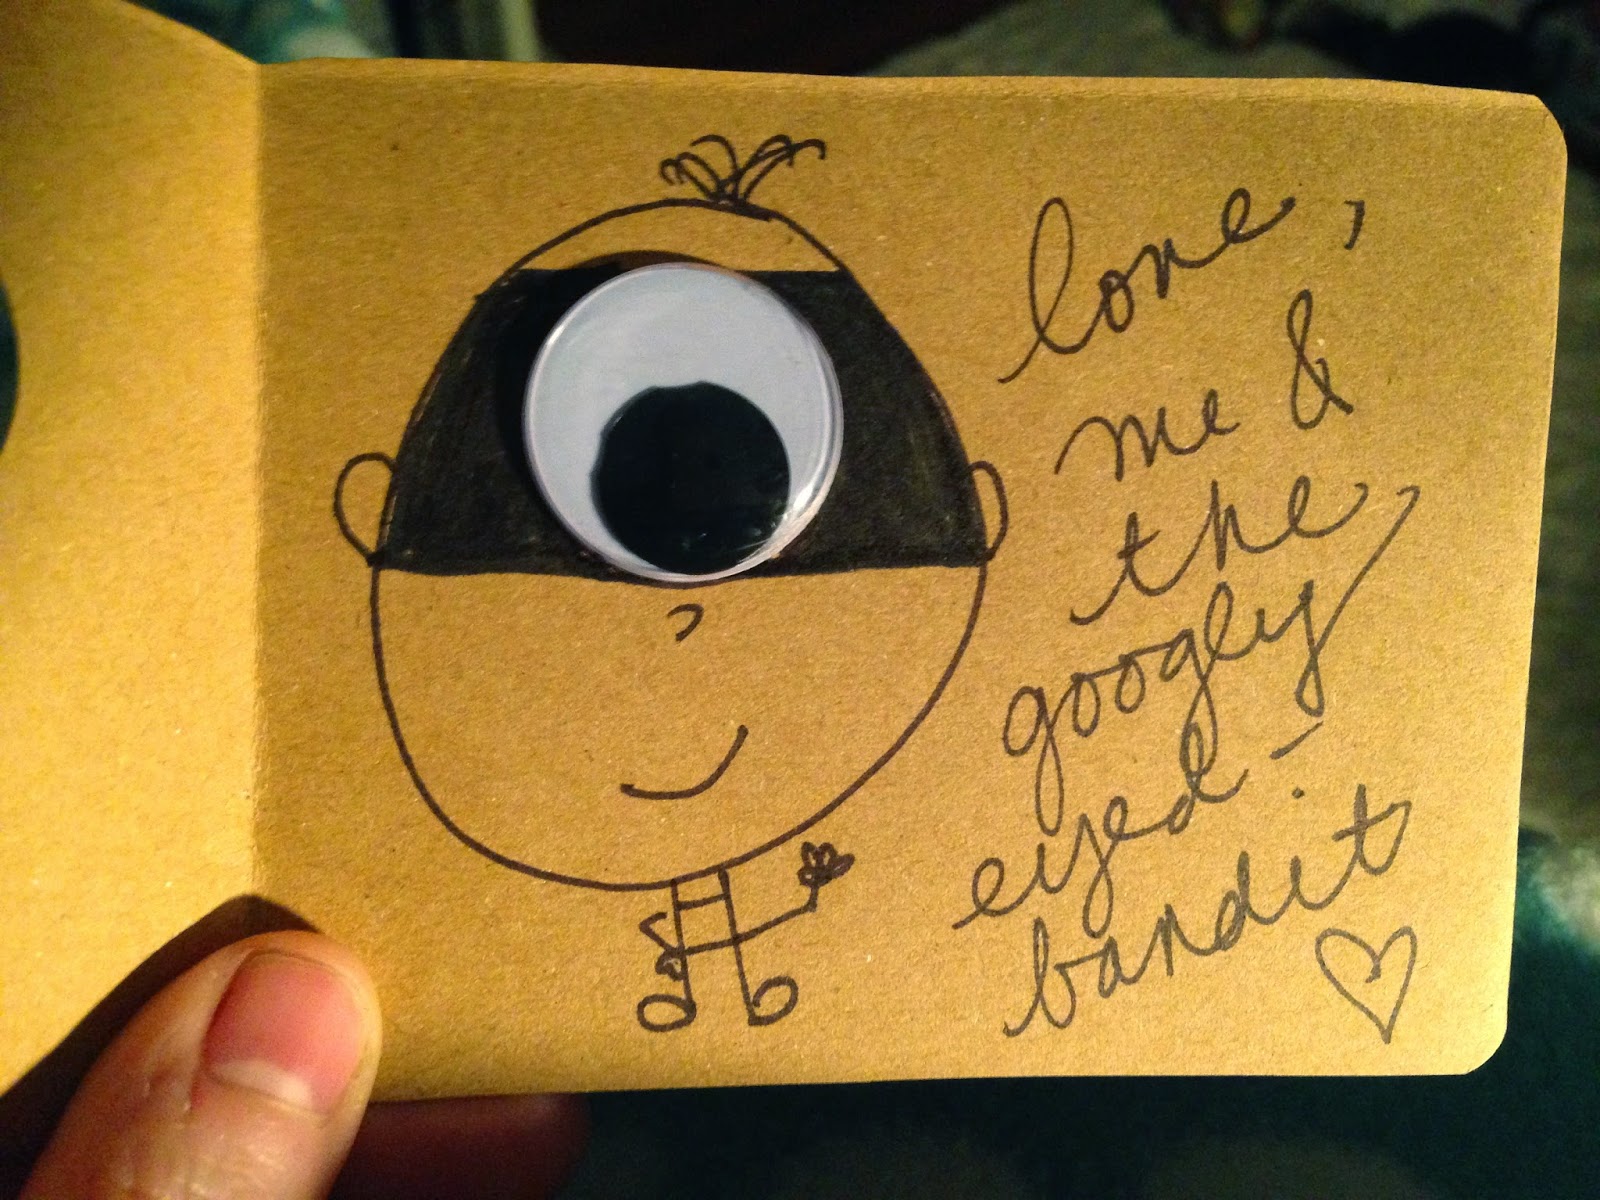 love,
me &
the
googly
eyed-
bandit